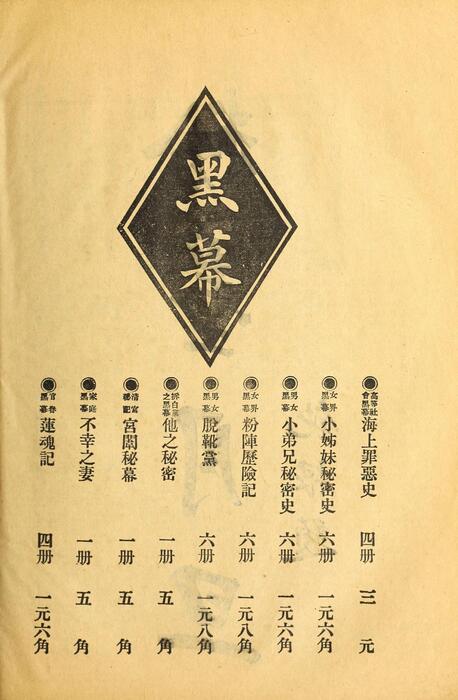 黑幕
高等社會黑幕 海上罪惡史 四册 三元
女界黑幕 小姊妹秘密史 六册 一元六角
男女黑幕 小弟兄秘密史 六册 一元六角
女界黑幕 粉陣歷險記 六册 一元八角
男女黑幕 脫靴黨 六册 一元八角
拆白黨之黑幕 他之秘密 一册 五角
清宮秘記 宮闈秘幕 一册 五角
家庭黑幕 不幸之妻 一册 五角
官眷黑幕 蓮魂記 四册 一元六角